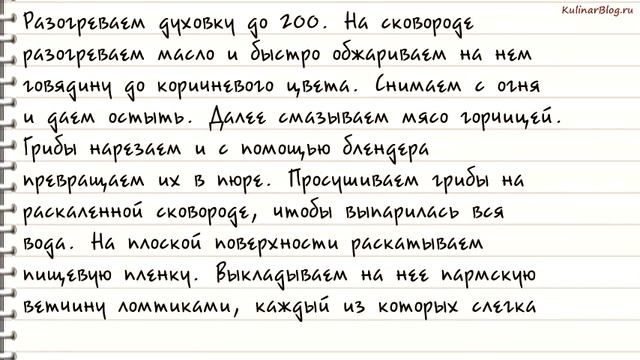 KulinarBlog.ru
Разогреваем духовку до 200. На сковороде
разогреваем масло и быстро обжариваем на нем
говядину до коричневого цвета. Снимаем с огня
и даем остыть. Далее смазываем мясо горчицей.
Грибы нарезаем и с помощью блендера
превращаем их в пюре. Просушиваем грибы на
раскаленной сковороде, чтобы выпарилась вся
вода. На плоской поверхности раскатываем
пищевую пленку. Выкладываем на нее пармскую
ветчину ломтиками, каждый из которых слегка